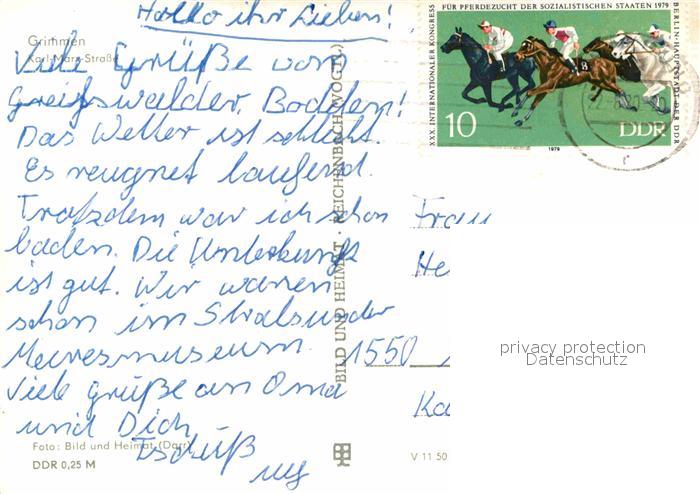 Hallo ihr Lieben!
Grimmen
Karl-Marx-Straße
Viele Grüße vom
Greifswalder Bodden!
Das Wetter ist schlecht.
Es reugnet laufend.
Trotzdem war ich schon
baden. Die Unterkunft
ist gut. Wir waren
schon im Stralsunder
Meeresmuseum.
Viele grüße an Oma
und Dich
Tschüß
Foto: Bild und Heimat (Darr)
DDR 0,25 M
BILD UND HEIMAT · REICHENBACH (VOGTL)
V 11 50
XXX. INTERNATIONALER KONGRESS
FÜR PFERDEZUCHT DER SOZIALISTISCHEN STAATEN 1979
BERLIN-HAUPTSTADT DER DDR
10
DDR
1979
Frau
He
1550
Ka
privacy protection
Datenschutz